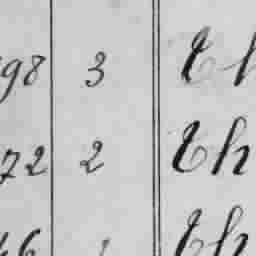 98 3 Th
72 2 Th
46 1 Th